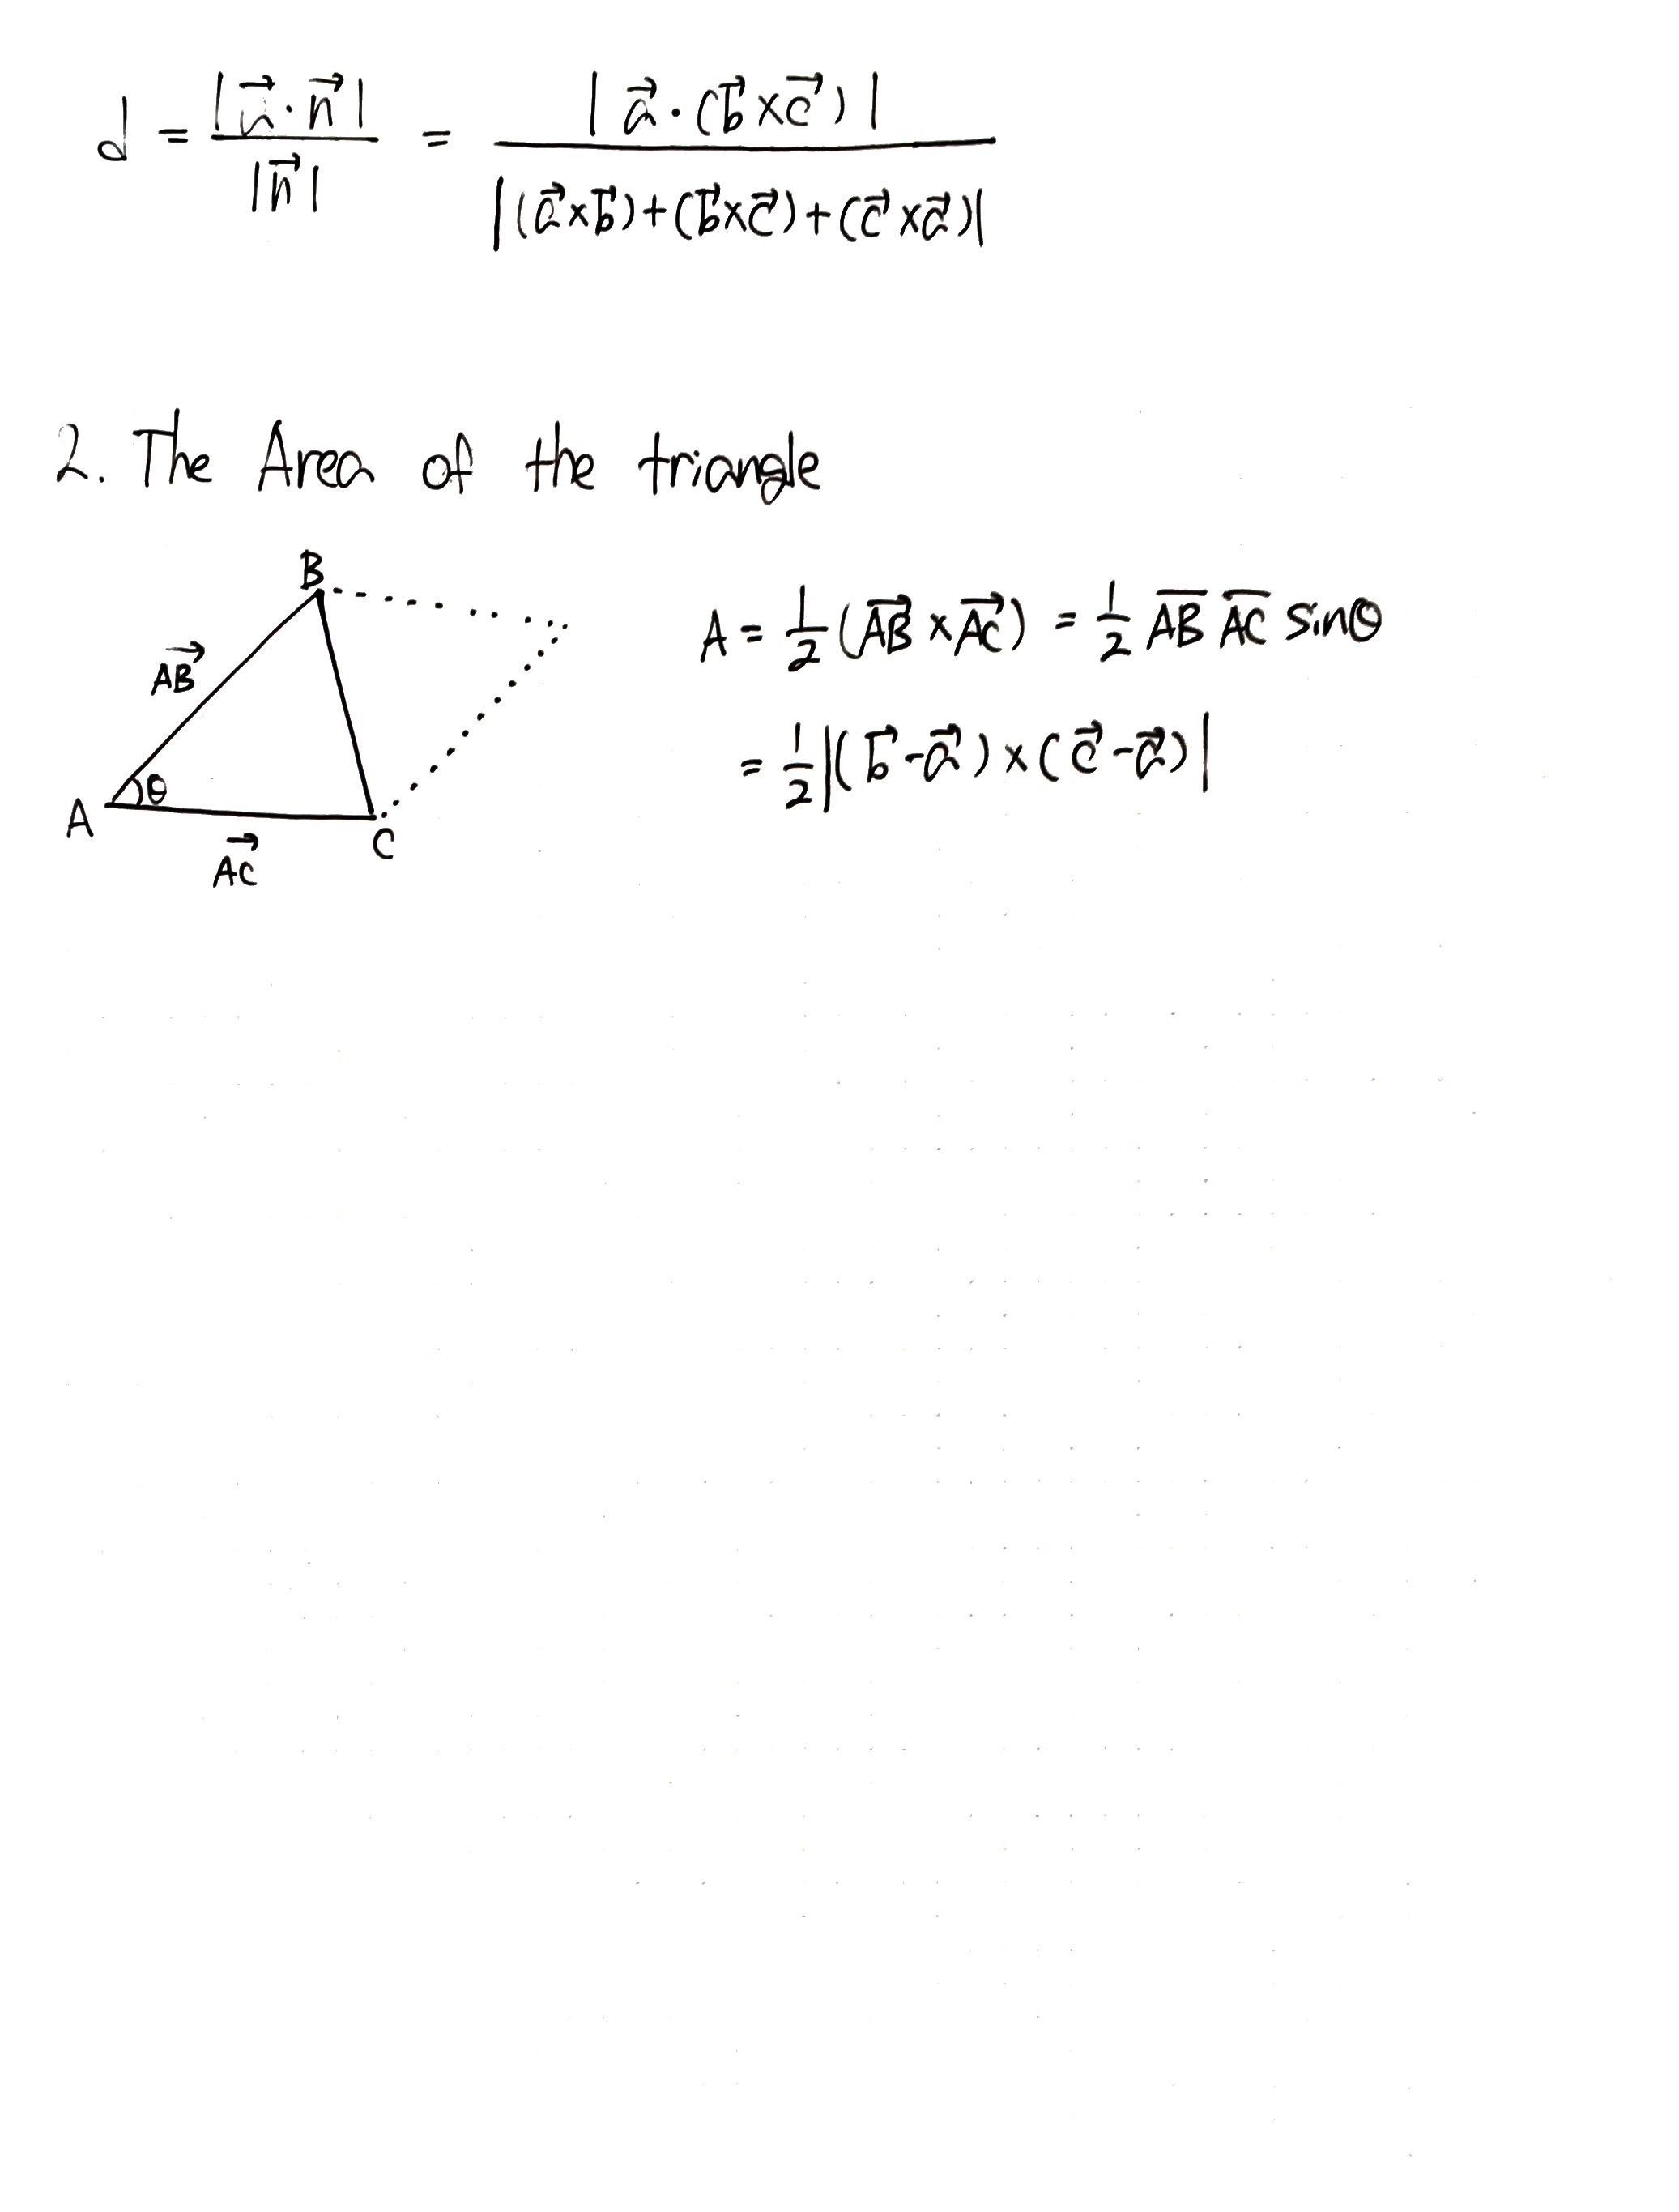 d = |a⃗·n⃗| / |n⃗| = |a⃗·(b⃗×c⃗)| / |(a⃗×b⃗)+(b⃗×c⃗)+(c⃗×a⃗)|
2. The Area of the triangle
B
AB⃗
θ
A
C
AC⃗
A = 1/2 (AB⃗ × AC⃗) = 1/2 A̅B̅ A̅C̅ sinθ
= 1/2 |(b⃗-a⃗)×(c⃗-a⃗)|